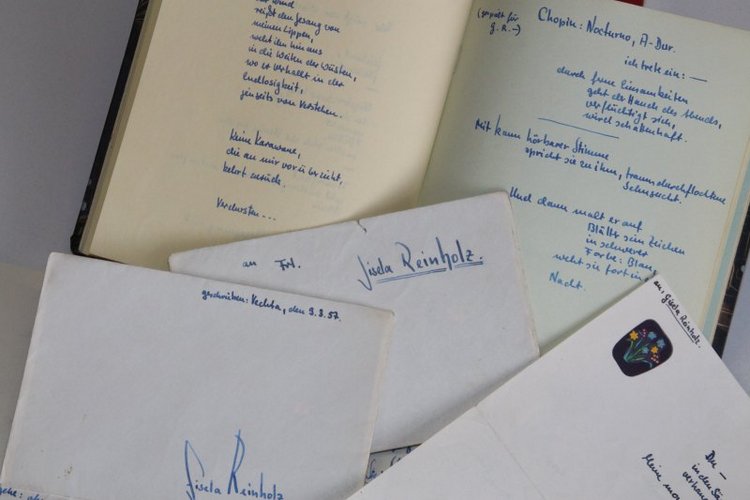 reißt den Gesang von
meinen Lippen,
weht ihn hinaus
in die Weiten der Wüsten,
wo er verhallt in der
Endlosigkeit,
jenseits vom Verstehen.
Keine Karawane,
die an mir vorüberzieht,
kehrt zurück.
Verdursten...
(gespielt für
G.R.-)
Chopin: Nocturno, A-Dur.
ich trete ein: —
durch ferne Einsamkeiten
geht der Hauch des Abends,
verflüchtigt sich,
wird schattenhaft.
Mit kaum hörbarer Stimme
spricht sie zu ihm, traumdurchflochtene
Sehnsucht.
Und dann malt er auf
Blätter sein Zeichen
in schwerer
Farbe: Blau,
weht sie fort in
Nacht.
an Frl. Gisela Reinholz.
geschrieben: Vechta, den 9.3.57.
Gisela Reinholz
an, Gisela Reinholz.
Du –
in den
Meine